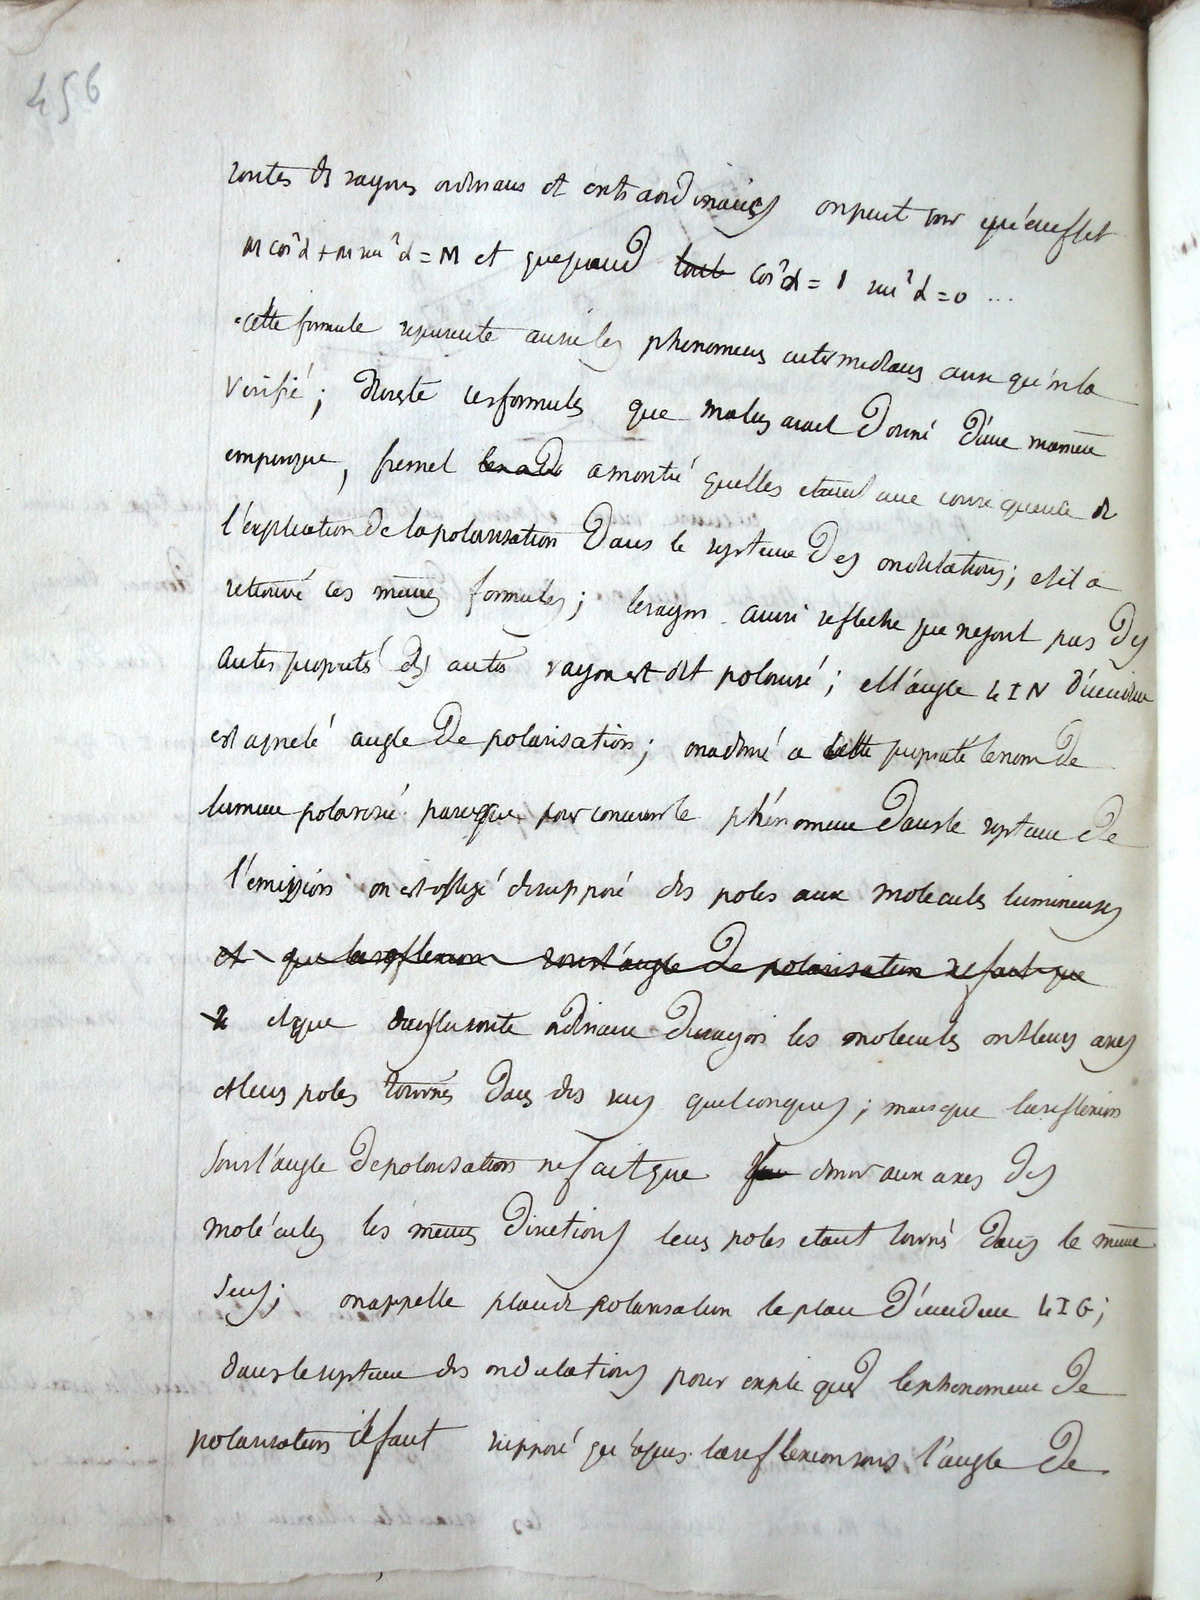 456
routes des rayons ordinaires et extraordinaires on peut voir qu'en effet
M cos²α + M sin²α = M et que quand cos²α = 1 sin²α = 0 ...
cette formule represente aussi les phenomenes intermediaires ainsi qu'on l'a
verifié ; du reste ces formules que malus avait donné d'une maniere
empirique, fresnel a montré quelles etaient une consequence de
l'explication de la polarisation dans le systeme des ondulations ; et il a
retrouvé ces memes formules ; le rayon ainsi reflechi jouissant pas des
autres proprietés des autres rayon est dit polarisé ; et l'angle LIN d'incidence
est appelé angle de polarisation ; on a donné a cette proprieté le nom de
lumiere polarisée parceque pour concevoir le phénomene dans le systeme de
l'emission on est obligé de supposé des poles aux molecules lumineuses
et que la reflexion sous l'angle de polarisation ne fait que
et que dans la route ordinaire du rayon les molecules ont leurs axes
et leurs poles tournés dans des sens quelconques ; mais que la reflexion
sous l'angle de polarisation ne fait que donner aux axes des
molécules les memes directions leurs poles etant tournés dans le meme
sens ; on appelle plan de polarisation le plan d'incidence LIG ;
dans le systeme des ondulations pour expliquer le phenomene de
polarisation il faut supposé qu'apres la reflexion sous l'angle de